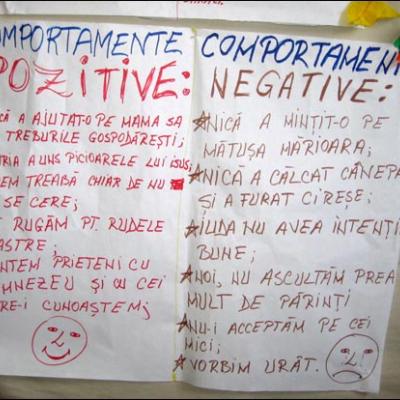 OMPORTAMENTE
POZITIVE:
CĂ A AJUTAT-O PE MAMA SA
TREBURILE GOSPODĂREȘTI;
RIA A UNS PICIOARELE LUI ISUS;
EM TREABĂ CHIAR DE NU
SE CERE;
RUGĂM PT. RUDELE
ASTRE;
NTEM PRIETENI CU
MNEZEU ȘI CU CEI
RE-I CUNOAȘTEM;
COMPORTAMEN
NEGATIVE:
NICĂ A MINȚIT-O PE
MĂTUȘA MĂRIOARA;
NICĂ A CĂLCAT CÂNEPA
ȘI A FURAT CIREȘE;
IUDA NU AVEA INTENȚII
BUNE;
NOI, NU ASCULTĂM PREA
MULT DE PĂRINȚI
NU-I ACCEPTĂM PE CEI
MICI;
VORBIM URÂT.